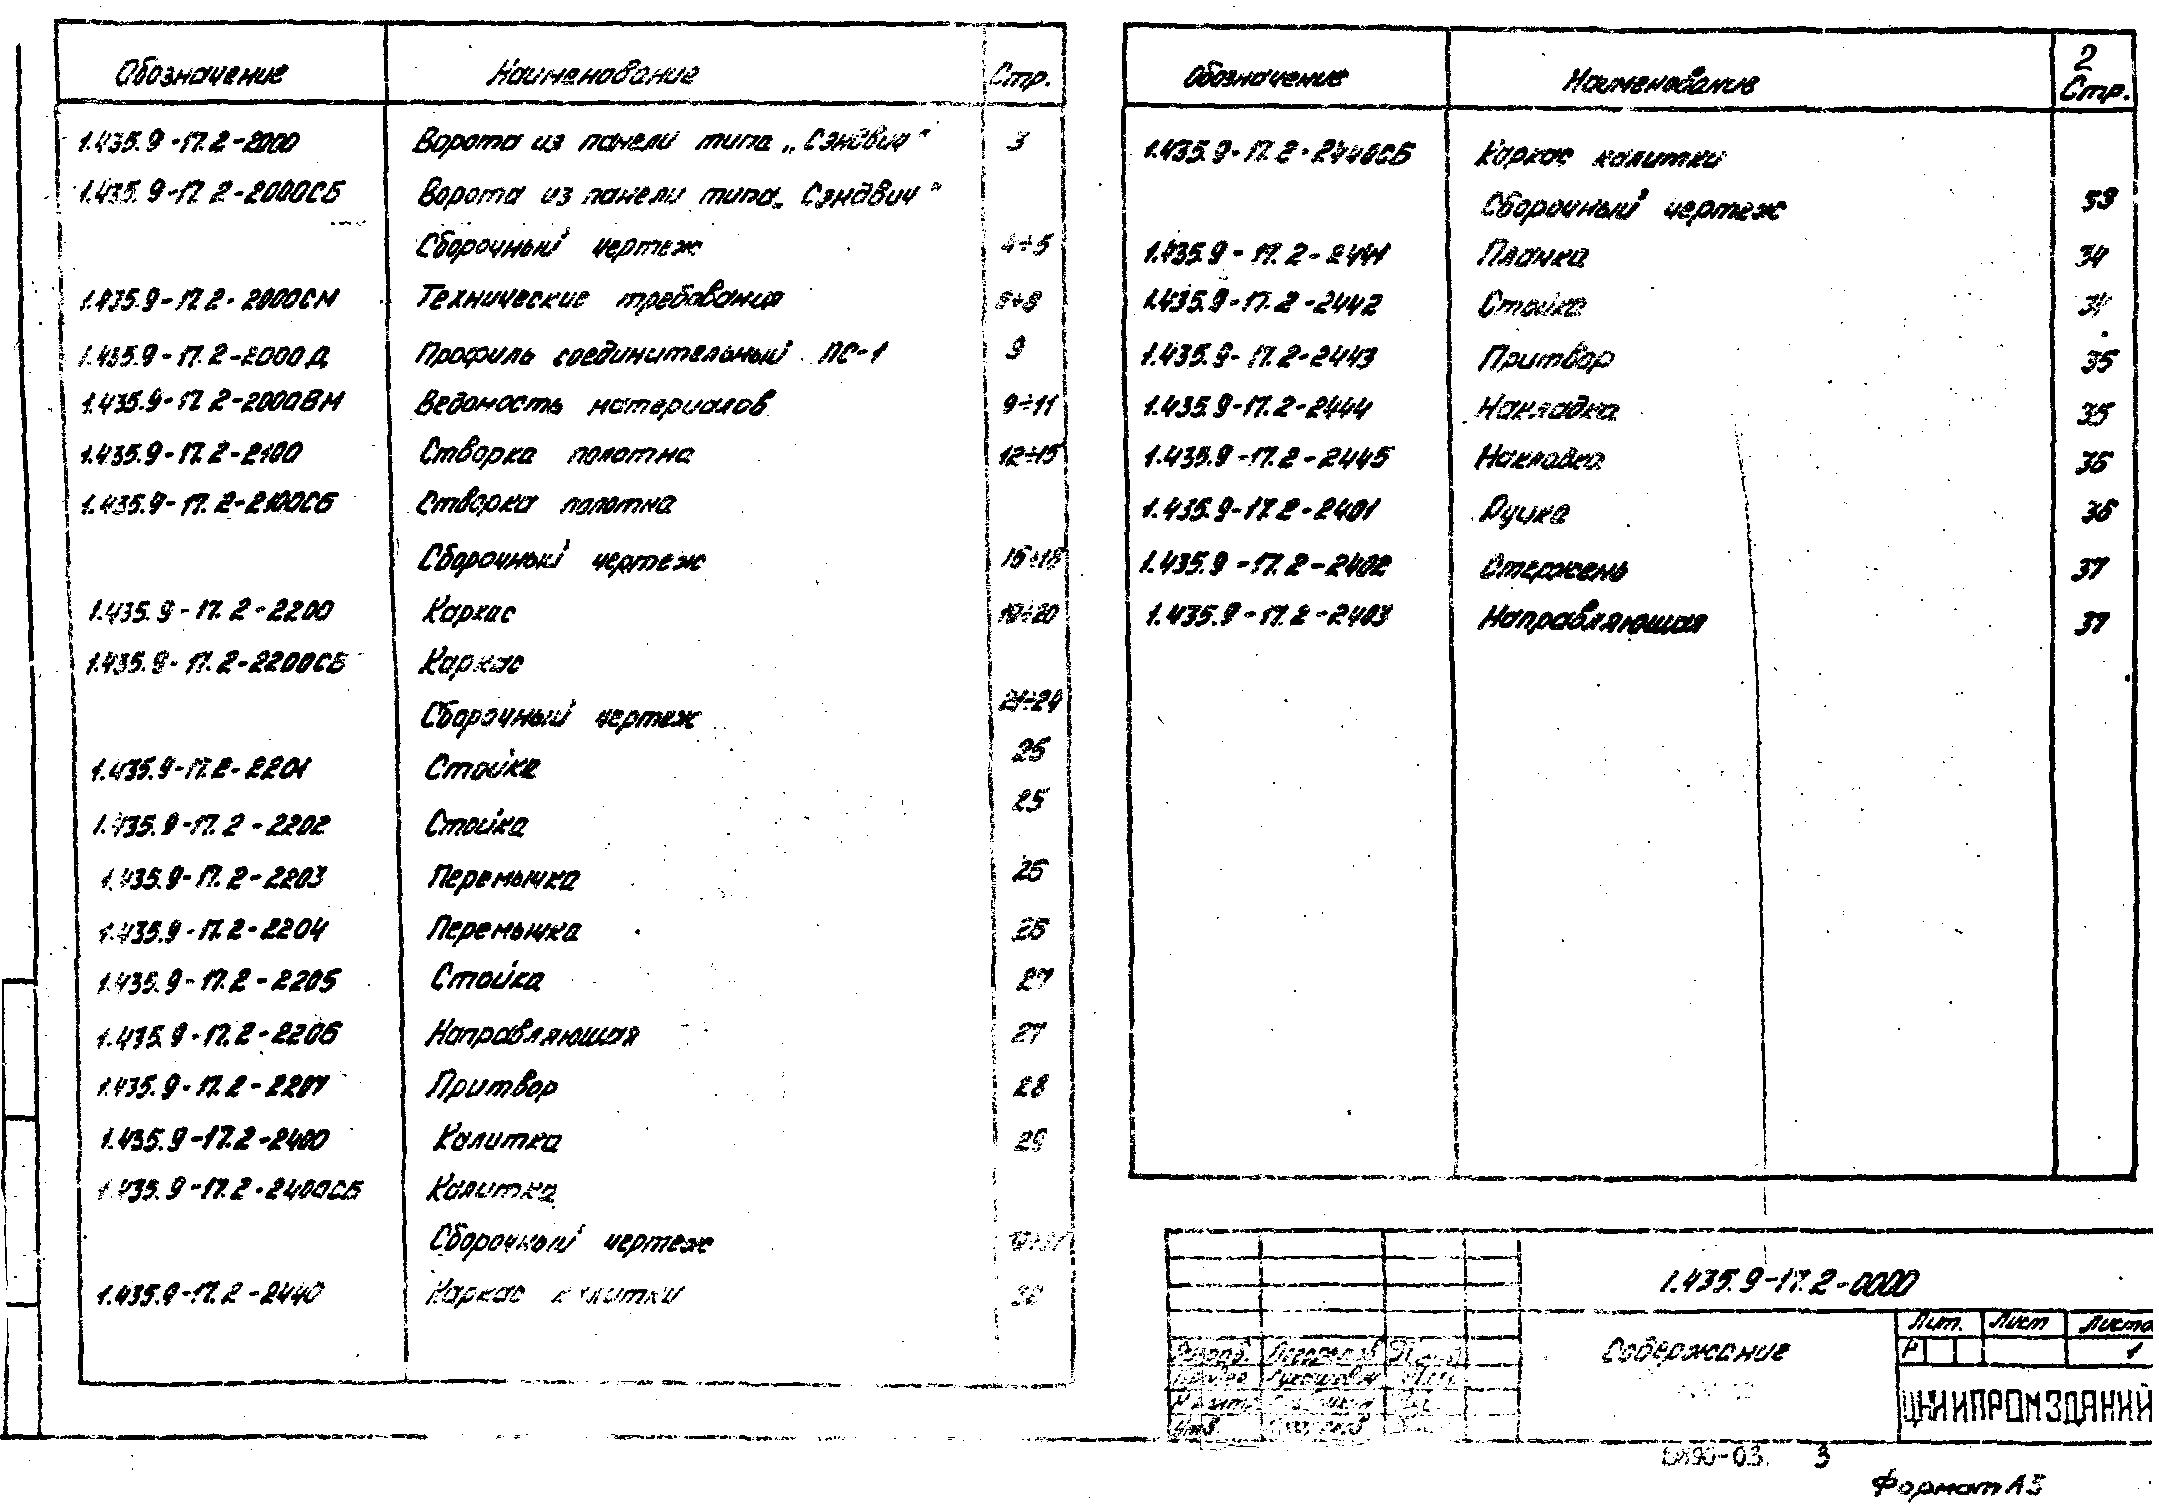 Обозначение Наименование Стр.
1.435.9-17.2-2000 Ворота из панели типа „Сэндвич" 3
1.435.9-17.2-2000СБ Ворота из панели типа „Сэндвич"
Сборочный чертеж 4÷5
1.435.9-17.2-2000СМ Технические требования
1.435.9-17.2-2000Д Профиль соединительный ПС-1 9
1.435.9-17.2-2000ВМ Ведомость материалов 9÷11
1.435.9-17.2-2100 Створка полотна 12÷15
1.435.9-17.2-2100СБ Створка полотна
Сборочный чертеж 16÷18
1.435.9-17.2-2200 Каркас 19÷20
1.435.9-17.2-2200СБ Каркас
Сборочный чертеж 21÷24
1.435.9-17.2-2201 Стойка 25
1.435.9-17.2-2202 Стойка 25
1.435.9-17.2-2203 Перемычка 26
1.435.9-17.2-2204 Перемычка 26
1.435.9-17.2-2205 Стойка 27
1.435.9-17.2-2206 Направляющая 27
1.435.9-17.2-2207 Притвор 28
1.435.9-17.2-2400 Калитка 29
1.435.9-17.2-2400СБ Калитка
Сборочный чертеж
1.435.9-17.2-2440 Каркас калитки
2
Обозначение Наименование Стр.
1.435.9-17.2-2440СБ Каркас калитки
Сборочный чертеж 33
1.435.9-17.2-2441 Планка 34
1.435.9-17.2-2442 Стойка 34
1.435.9-17.2-2443 Притвор 35
1.435.9-17.2-2444 Накладка 35
1.435.9-17.2-2445 Накладка 36
1.435.9-17.2-2401 Ручка 36
1.435.9-17.2-2402 Стержень 37
1.435.9-17.2-2403 Направляющая 37
1.435.9-17.2-0000
Содержание
Лит. Лист Листо
Р 1
Разраб.
Утв
ЦНИИПРОМЗДАНИЙ
3
Формат А3